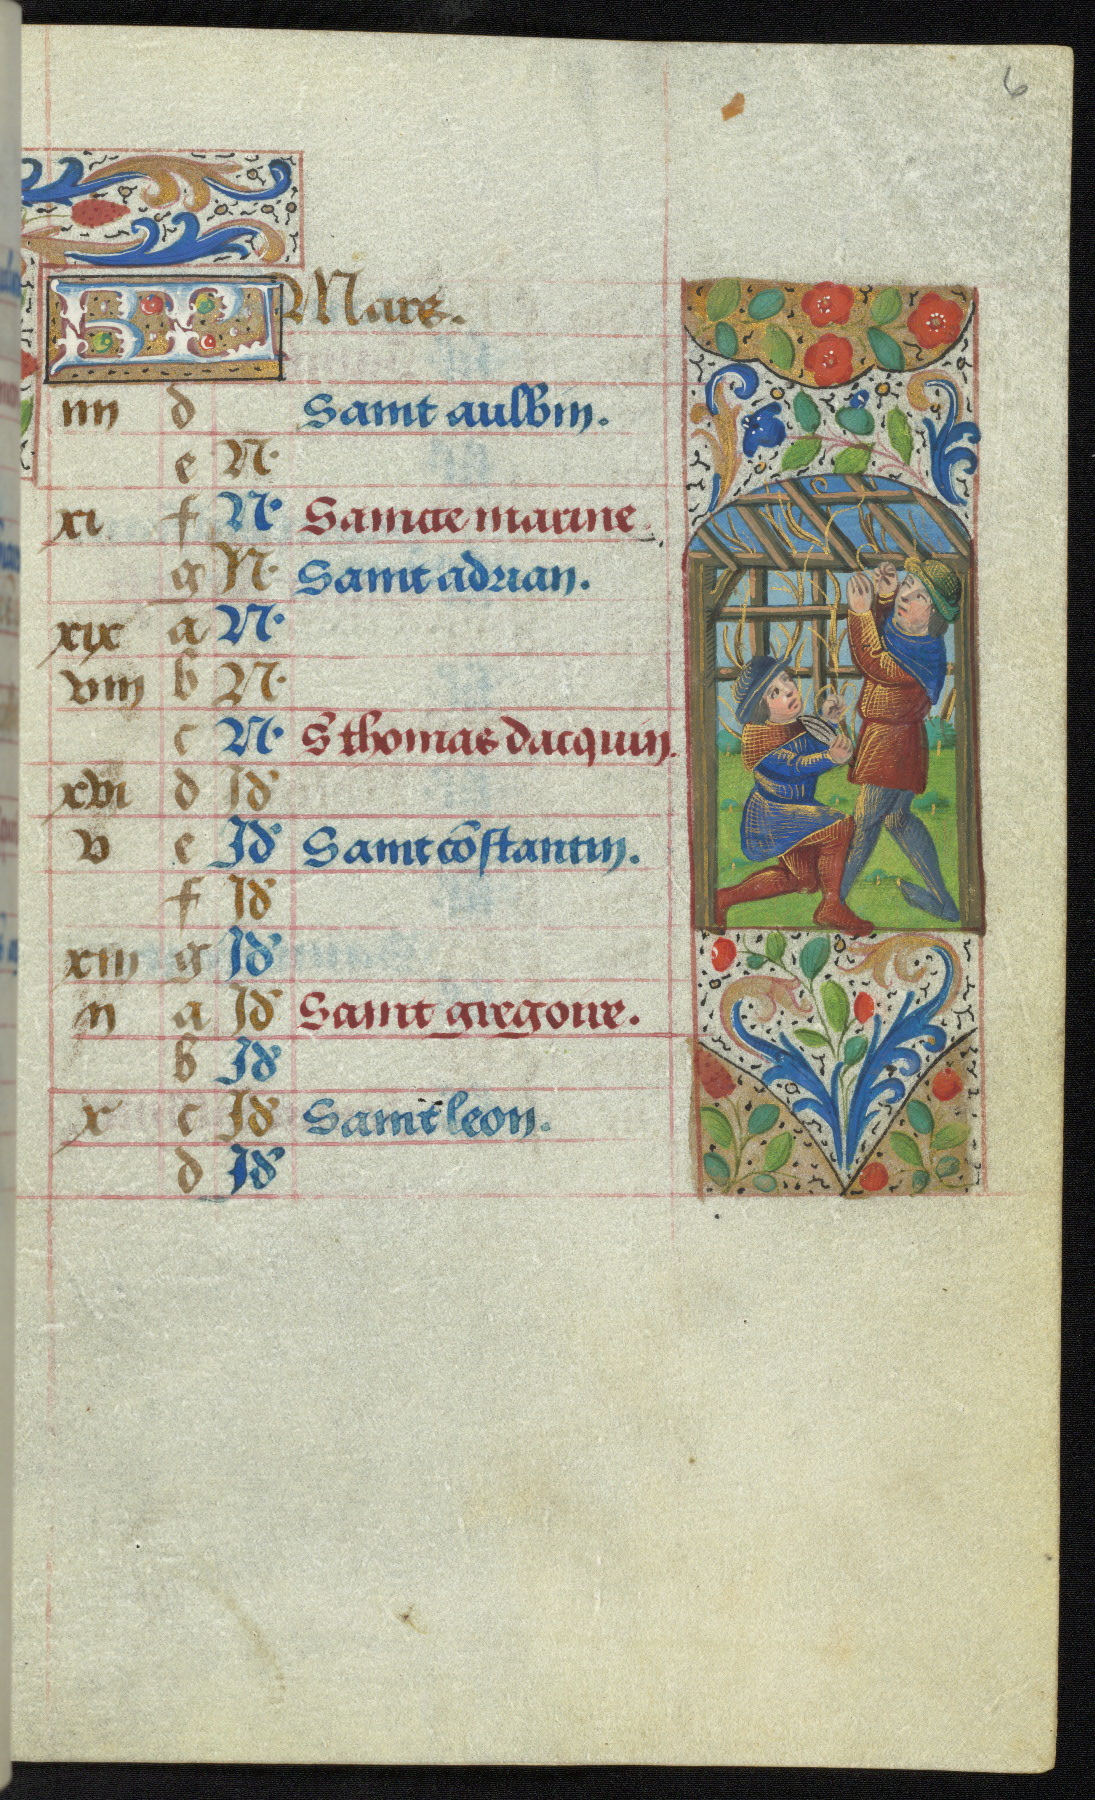 6
KL Mars.
iiii d Saint aulbin.
e N.
xi f N. Saincte marine.
g N. Saint adrian.
xix a N.
viii b N.
c N. S thomas dacquin.
xvi d Id
v e Id Saint cõstantin.
f Id
xiii g Id
ii a Id Saint gregoire.
b Id
x c Id Saint leon.
d Id